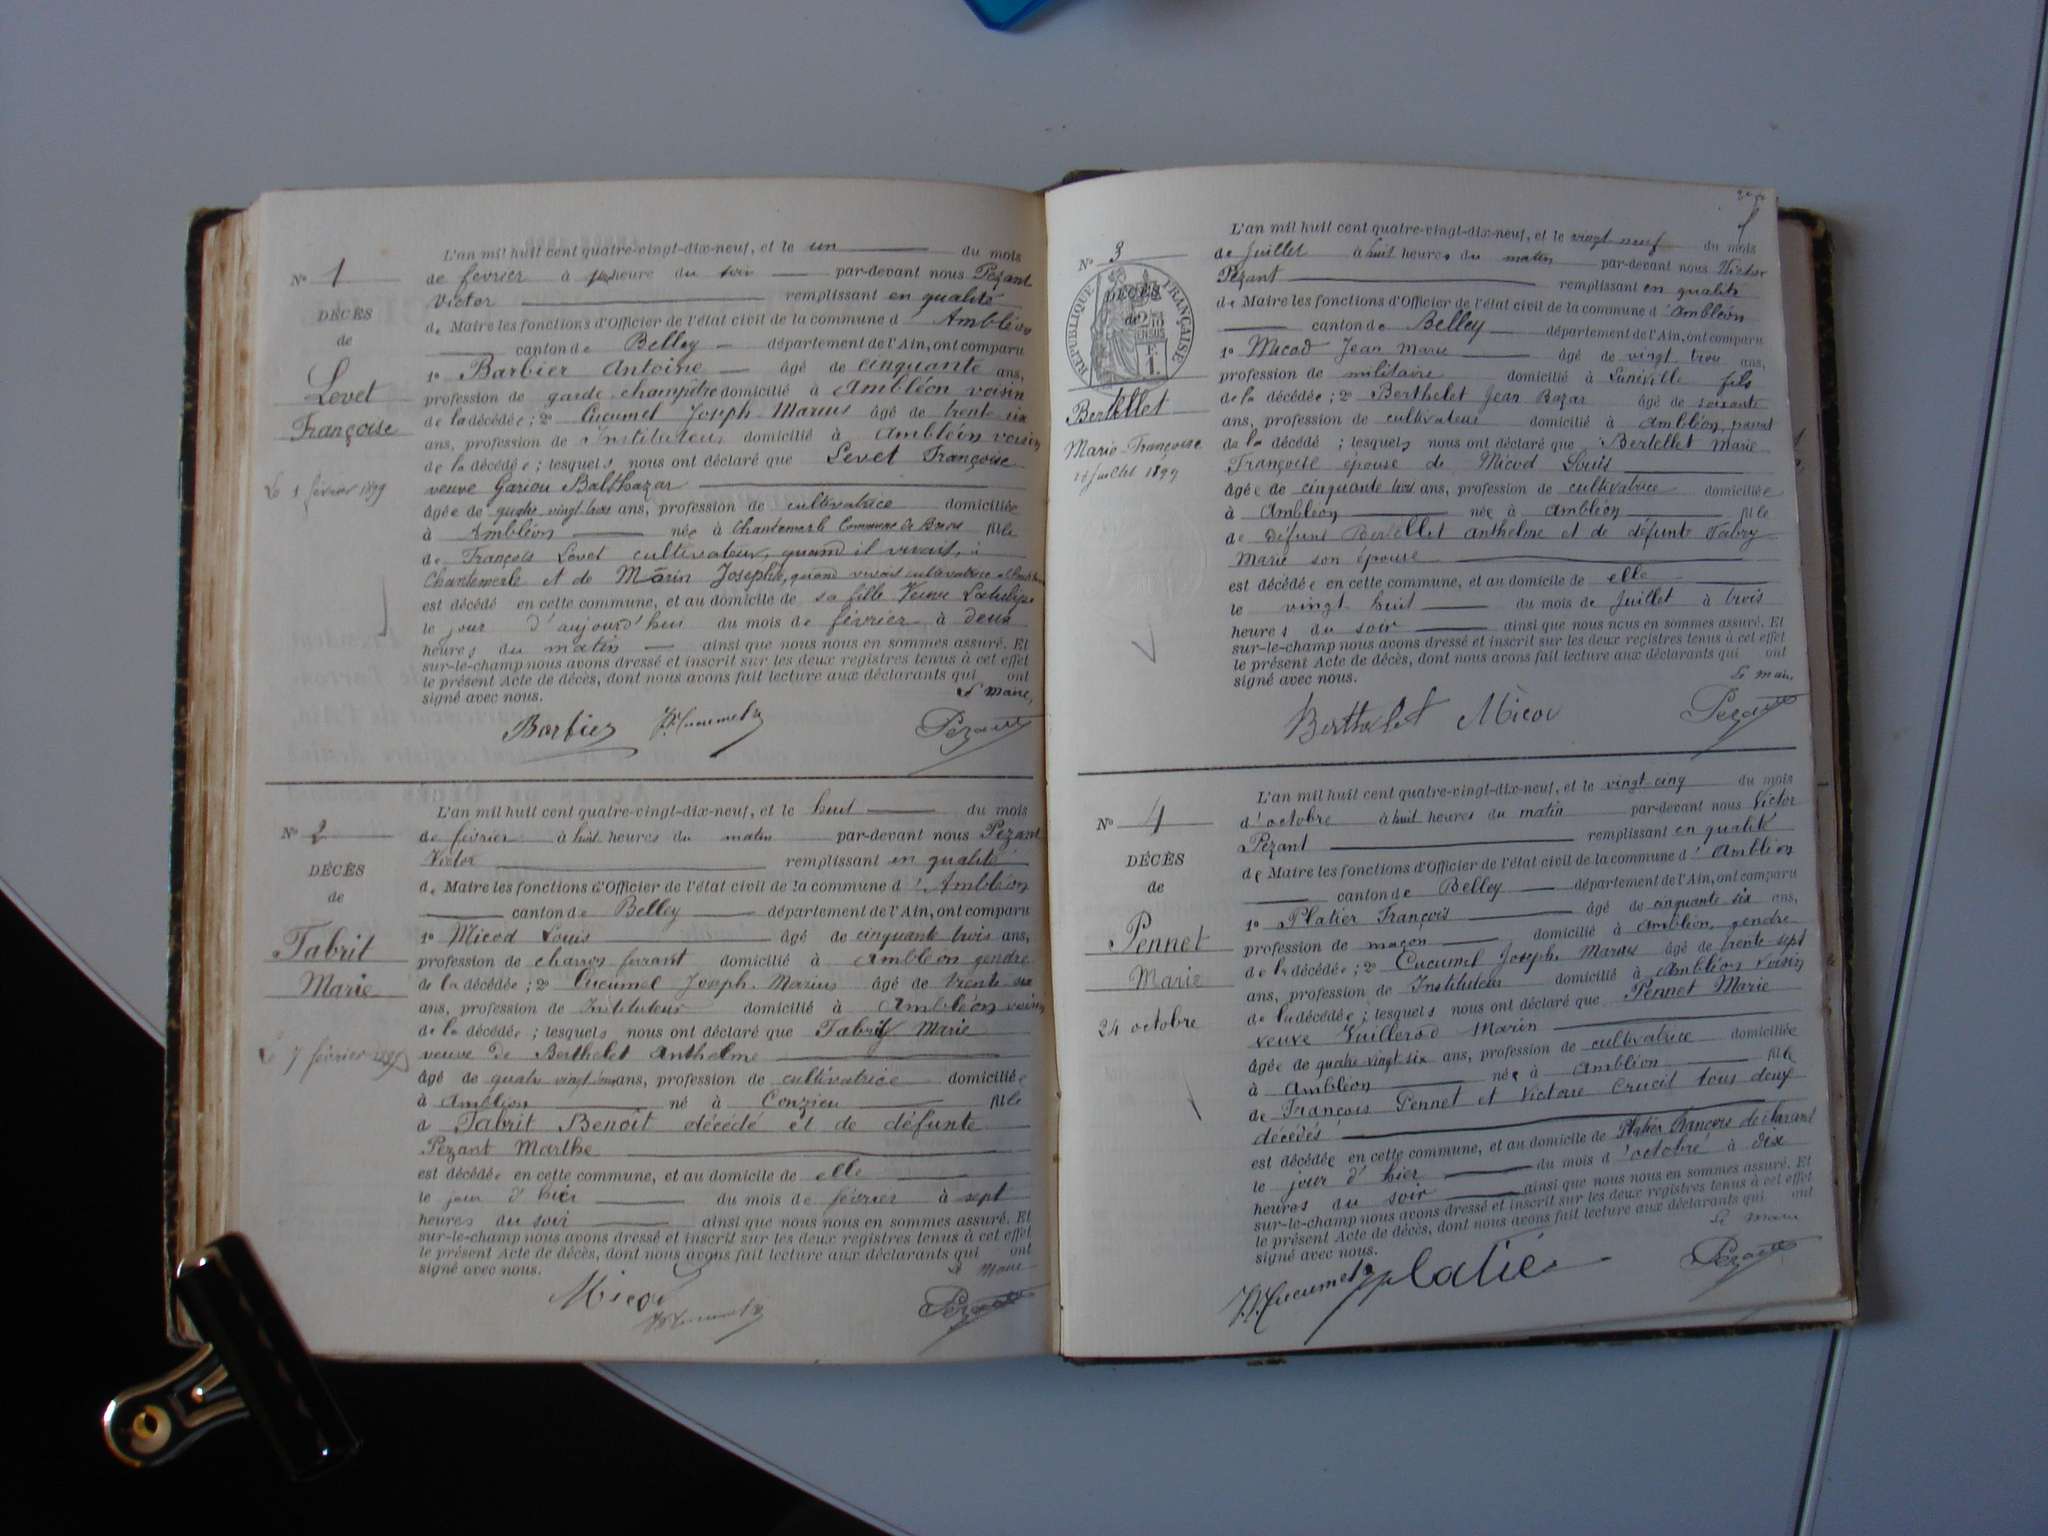 L'an mil huit cent quatre-vingt-dix-neuf, et le un du mois
N° 1
de février à heure du soir par-devant nous Pezant
Victor remplissant en qualité
DÉCÈS
de Maire les fonctions d'Officier de l'état civil de la commune d'Ambléon
de
canton de Belley département de l'Ain, ont comparu
Levet
1° Barbier Antoine âgé de cinquante ans,
profession de garde champêtre domicilié à Ambléon voisin
Françoise
de la décédée ; 2° Cucumel Joseph Marius âgé de trente six
ans, profession de Instituteur domicilié à Ambléon voisin
de la décédée ; lesquels nous ont déclaré que Levet Françoise
Le 1 février 1899
veuve Gariou Balthazar
âgée de quatre vingt trois ans, profession de cultivatrice domiciliée
à Ambléon née à Chantemerle Commune de fille
de François Levet cultivateur, quand il vivait, à
Chantemerle et de Marin Josephte, quand vivait cultivatrice
est décédé en cette commune, et au domicile de sa fille Veuve
le jour d'aujourd'hui du mois de février à deux
heures du matin ainsi que nous nous en sommes assuré. Et
sur-le-champ nous avons dressé et inscrit sur les deux registres tenus à cet effet
le présent Acte de décès, dont nous avons fait lecture aux déclarants qui ont
signé avec nous. Le maire,
Barbier JM Cucumel Pezant
L'an mil huit cent quatre-vingt-dix-neuf, et le huit du mois
N° 2
de février à huit heures du matin par-devant nous Pezant
Victor remplissant en qualité
DÉCÈS
de Maire les fonctions d'Officier de l'état civil de la commune d'Ambléon
de
canton de Belley département de l'Ain, ont comparu
Fabrit
1° Micod Louis âgé de cinquante trois ans,
profession de charron ferrant domicilié à Ambléon gendre
Marie
de la décédée ; 2° Cucumel Joseph Marius âgé de trente six
ans, profession de Instituteur domicilié à Ambléon voisin
de la décédée ; lesquels nous ont déclaré que Fabrit Marie
Le 7 février 1899
veuve de Berthelet Anthelme
âgé de quatre vingt ans, profession de cultivatrice domiciliée
à Ambléon né à Conzieu fille
d Fabrit Benoît décédé et de défunte
Pezant Marthe
est décédée en cette commune, et au domicile de elle
le jour d'hier du mois de février à sept
heures du soir ainsi que nous nous en sommes assuré. Et
sur-le-champ nous avons dressé et inscrit sur les deux registres tenus à cet effet
le présent Acte de décès, dont nous avons fait lecture aux déclarants qui ont
signé avec nous. Le Maire
Micod JM Cucumel Pezant
L'an mil huit cent quatre-vingt-dix-neuf, et le vingt neuf du mois
N° 3
de Juillet à huit heures du matin par-devant nous Victor
Pezant remplissant en qualité
RÉPUBLIQUE FRANÇAISE
DÉCÈS
de
de Maire les fonctions d'Officier de l'état civil de la commune d'Ambléon
canton de Belley département de l'Ain, ont comparu
1° Micod Jean Marie âgé de vingt trois ans,
profession de militaire domicilié à Lunéville fils
Bertellet
de la décédée ; 2° Berthelet Jean Bazar âgé de soixante
ans, profession de cultivateur domicilié à Ambléon, parent
Marie-Françoise
de la décédé ; lesquels nous ont déclaré que Bertellet Marie
Françoise épouse de Micod Louis
Juillet 1899
âgée de cinquante trois ans, profession de cultivatrice domiciliée
à Ambléon née à Ambléon fille
de défunt Bertellet Anthelme et de défunte Fabry
Marie son épouse
est décédée en cette commune, et au domicile de elle
le vingt huit du mois de Juillet à trois
heures du soir ainsi que nous nous en sommes assuré. Et
sur-le-champ nous avons dressé et inscrit sur les deux registres tenus à cet effet
le présent Acte de décès, dont nous avons fait lecture aux déclarants qui ont
signé avec nous. Le maire,
Berthelet Micod Pezant
L'an mil huit cent quatre-vingt-dix-neuf, et le vingt cinq du mois
N° 4
d'octobre à huit heures du matin par-devant nous Victor
Pezant remplissant en qualité
DÉCÈS
de Maire les fonctions d'Officier de l'état civil de la commune d'Ambléon
de
canton de Belley département de l'Ain, ont comparu
Pennet
1° Platier François âgé de cinquante six ans,
profession de maçon domicilié à Ambléon, gendre
Marie
de la décédée ; 2° Cucumel Joseph Marius âgé de trente sept
ans, profession de Instituteur domicilié à Ambléon voisin
24 octobre
de la décédée ; lesquels nous ont déclaré que Pennet Marie
veuve Vuillerod Marin
âgée de quatre vingt six ans, profession de cultivatrice domiciliée
à Ambléon née à Ambléon fille
de François Pennet et Victoire Crucit tous deux
décédés
est décédée en cette commune, et au domicile de Platier François déclarant
le jour d'hier du mois d'octobre à dix
heures du soir ainsi que nous nous en sommes assuré. Et
sur-le-champ nous avons dressé et inscrit sur les deux registres tenus à cet effet
le présent Acte de décès, dont nous avons fait lecture aux déclarants qui ont
signé avec nous. Le maire
JM Cucumel platier Pezant